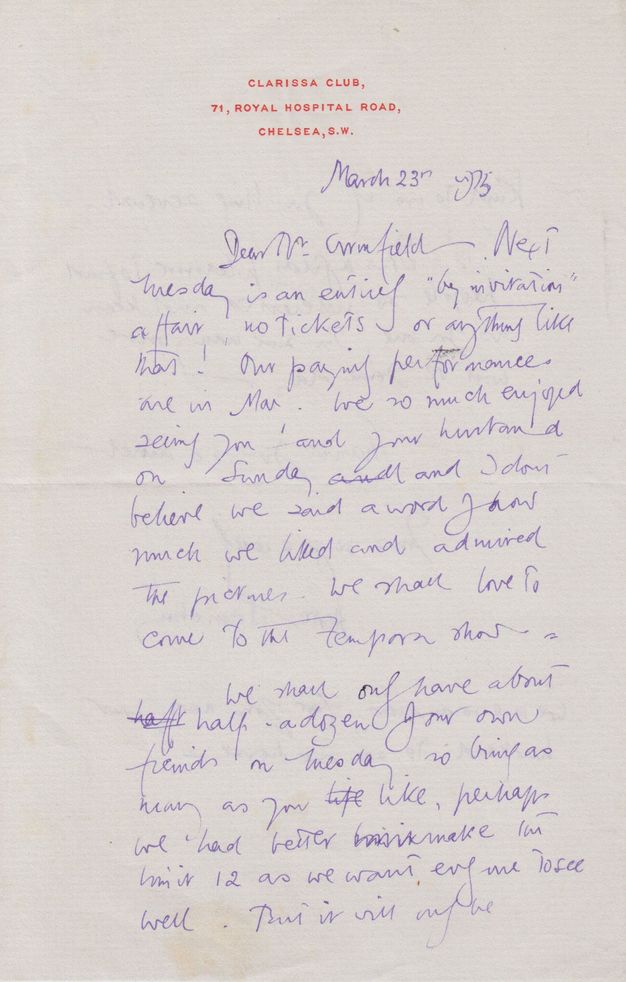 CLARISSA CLUB,
71, ROYAL HOSPITAL ROAD,
CHELSEA, S.W.
March 23rd
Dear Mr. Next
Tuesday is an entirely "by invitation"
affair, no tickets or anything like
that! Our paying performances
are in May. We so much enjoyed
seeing you and your husband
on Sunday and and I dont
believe we said a word of how
much we liked and admired
the pictures. We shall love to
come to the Tempera show
We shall only have about
half half-a-dozen of our own
friends on Tuesday so bring as
many as you like, perhaps
we had better make the
limit 12 as we want everyone to see
well. But it will only be